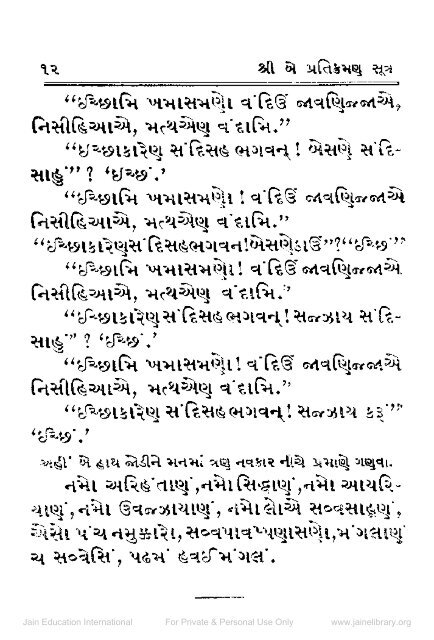 ૧૨ શ્રી બે પ્રતિક્રમણ સૂત્ર
“ઇચ્છામિ ખમાસમણો વંદિઉં જાવણિજ્જાએ,
નિસીહિઆએ, મત્થએણ વંદામિ.”
“ઇચ્છાકારેણ સંદિસહ ભગવન્! બેસણે સંદિ-
સાહું”? ‘ઇચ્છં.’
“ઇચ્છામિ ખમાસમણો! વંદિઉં જાવણિજ્જાએ
નિસીહિઆએ, મત્થએણ વંદામિ.”
“ઇચ્છાકારેણ સંદિસહ ભગવન! બેસણે ઠાઉં”? “ઇચ્છં”
“ઇચ્છામિ ખમાસમણો! વંદિઉં જાવણિજ્જાએ
નિસીહિઆએ, મત્થએણ વંદામિ.”
“ઇચ્છાકારેણ સંદિસહ ભગવન્! સજ્ઝાય સંદિ-
સાહું” ? ‘ઇચ્છં.’
“ઇચ્છામિ ખમાસમણો! વંદિઉં જાવણિજ્જાએ
નિસીહિઆએ, મત્થએણ વંદામિ.”
“ઇચ્છાકારેણ સંદિસહ ભગવન્! સજ્ઝાય કરૂં”
‘ઇચ્છં.’
અહીં બે હાથ જોડીને મનમાં ત્રણ નવકાર નીચે પ્રમાણે ગણવા.
નમો અરિહંતાણં, નમો સિદ્ધાણં, નમો આયરિ-
યાણં, નમો ઉવજ્ઝાયાણં, નમો લોએ સવ્વસાહૂણં,
એસો પંચ નમુક્કારો, સવ્વપાવપ્પણાસણો, મંગલાણં
ચ સવ્વેસિં, પઢમં હવઈ મંગલં.
Jain Education International For Private & Personal Use Only www.jainelibrary.org